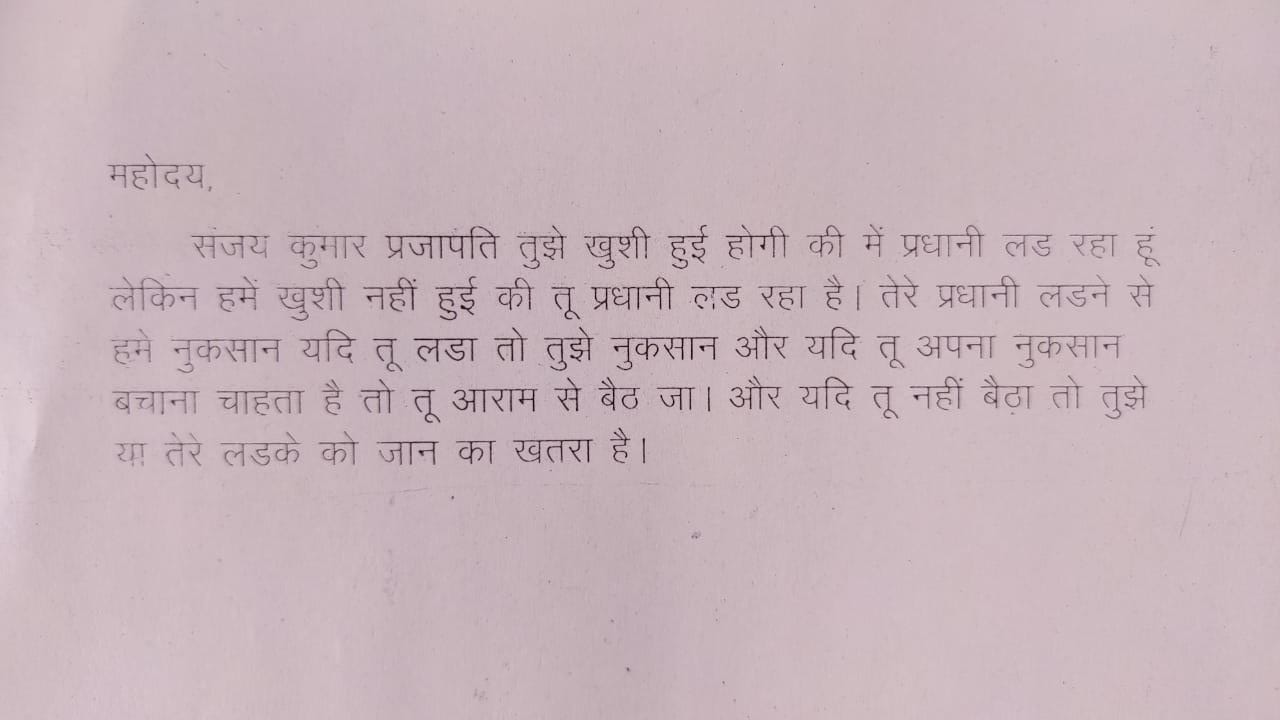 महोदय,
संजय कुमार प्रजापति तुझे खुशी हुई होगी की में प्रधानी लड रहा हूं
लेकिन हमें खुशी नहीं हुई की तू प्रधानी लड रहा है। तेरे प्रधानी लडने से
हमे नुकसान यदि तू लडा तो तुझे नुकसान और यदि तू अपना नुकसान
बचाना चाहता है तो तू आराम से बैठ जा। और यदि तू नहीं बैठा तो तुझे
या तेरे लडके को जान का खतरा है।